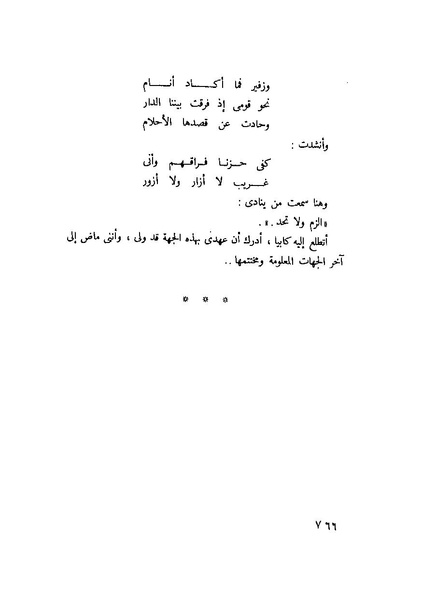 وزفير فما أكاد أنام
نحو قومى إذ فرقت بيننا الدار
وحادت عن قصدها الأحلام
وأنشدت :
كفى حزنا فراقهم وأنى
غريب لا أزار ولا أزور
وهنا سمعت من ينادى :
«الزم ولا تحد .» .
أتطلع إليه كابيا ، أدرك أن عهدى بهذه الجهة قد ولى ، وأننى ماض إلى
آخر الجهات المعلومة ومختتمها ..
* * *
٧٦٦